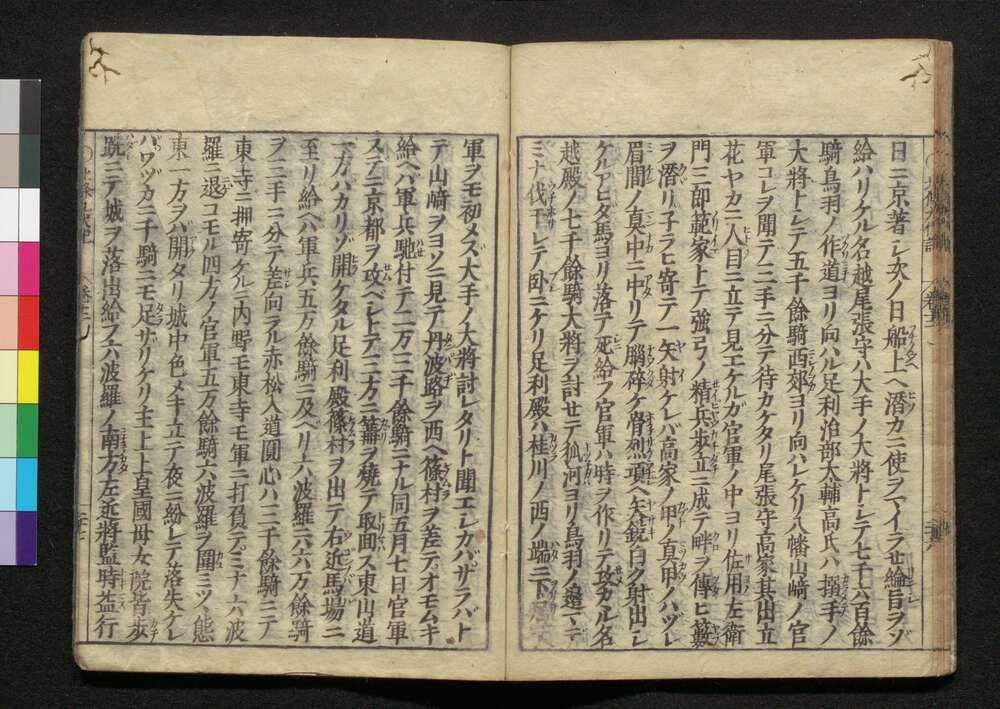 日ニ京著シ次ノ日船上ヘ潜カニ使ヲマイラせ綸旨ヲゾ
給ハリケル名越尾張守ハ大手ノ大將トシテ七千六百餘
騎鳥羽ノ作道ヨリ向ハル足利治部大輔高氏ハ搦手ノ
大將トシテ五千餘騎西郊ヨリ向ハレケリ八幡山﨑ノ官
軍コレヲ聞テ三手ニ分テ待カケタリ尾張守高家其出立
花ヤカニ人目ニ立テ見エケルガ官軍ノ中ヨリ佐用左衛
門三郎範家トテ強弓ノ精兵歩立ニ成テ畔ヲ傳ヒ藪
ヲ潜リ子ラヒ寄テ一矢射ケレバ高家ノ甲ノ真甲ノハヅレ
眉間ノ真中ニ中リテ脳碎ケ骨烈項ヘ矢鋭白ク射出シ
ケルアヒダ馬ヨリ落テ死給フ官軍ハ時ヲ作リテ攻カル名
越殿ノ七千餘騎大將ヲ討せテ狐河ヨリ鳥羽ノ邉マデ
ミナ伐干レテ卧ニケリ足利殿ハ桂川ノ西ノ端ニ下
軍ヲモ初メズ大手ノ大將討レタリト聞エレカバザラバト
テ山﨑ヲヨソニ見テ丹波路ヲ西ヘ篠村ヲ差テオモムキ
給ヘバ軍兵馳付テ二万三千餘騎ニナル同五月七日官軍
ステニ京都ヲ攻ベシトテ三方ニ篝ヲ燒テ取囬ス東山道
一方バカリゾ開ケタル足利殿篠村ヲ出テ右近馬場ニ
至リ給ヘハ軍兵五万餘騎ニ及ベリ六波羅六六万餘騎
ヲ二手ニ分テ差向ラル赤松入道圓心ハ三千餘騎ニテ
東寺ニ押寄ケルニ内野モ東寺モ軍ニ打負テミナ六波
羅ニ退コモル四方ノ官軍五万餘騎六波羅ヲ圍ミツヽ態
東一方ヲバ開タリ城中色メキ立テ夜ニ紛レテ落失ケレ
バワヅカニ千騎ニモ足サリケリ主上上皇國母女院皆歩
跣ニテ城ヲ落出給フ六波羅ノ南方左近將監時益行